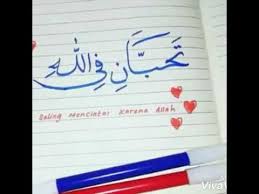 تَحَبَّانِ فِي اللهِ
Saling Mencintai Karena Allah
Viva